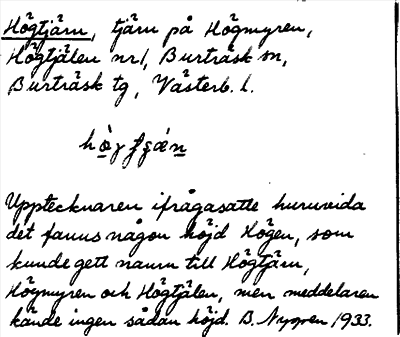 Högtjärn, tjärn på Högmyren,
Högtjälen nr 1, Burträsk sn,
Burträsk tg, Västerb. l.
Upptecknaren ifrågasatte huruvida
det fanns någon höjd Högen, som
kunde gett namn till Högtjärn,
Högmyren och Högtjälen, men meddelaren
kände ingen sådan höjd. B. Nygren 1933.